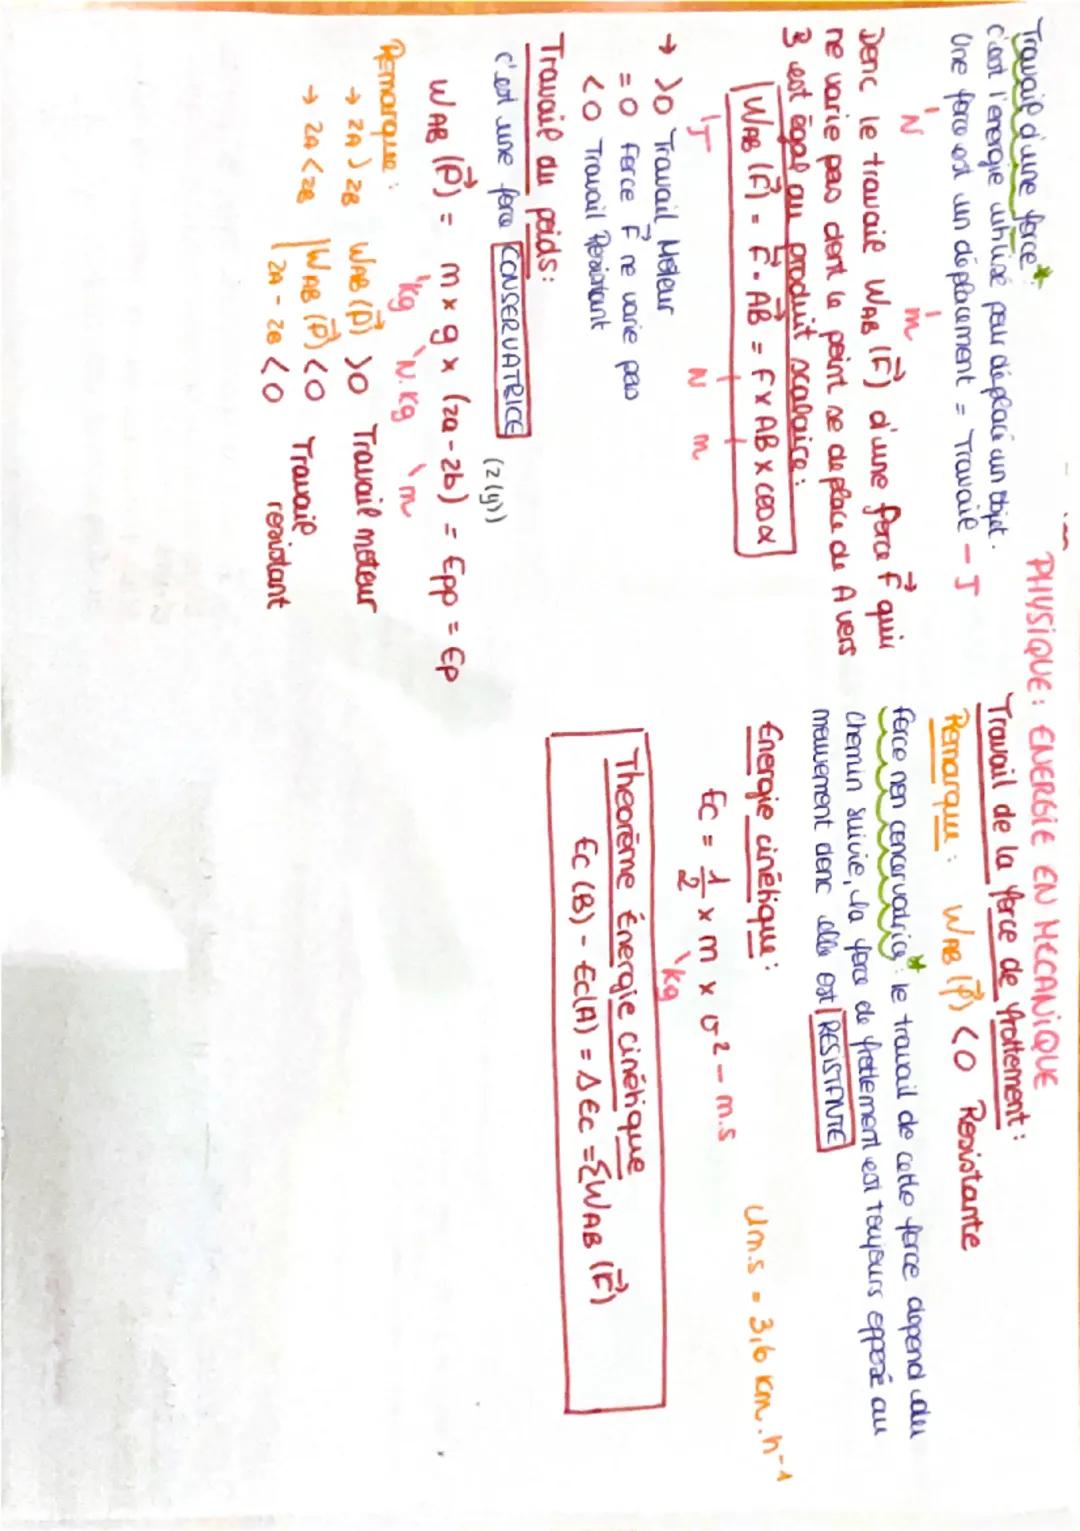 PHYSIQUE : ENERGIE EN MECANIQUE
Travail d'une force* :
c'est l'energie utilisé pour déplacé un objet.
Une force est un déplacement = Travail - J
N m
Donc le travail WAB (F→) d'une force F→ qui
ne varie pas dont le point se deplace de A vers
B est égal au produit scalaire :
WAB (F→) = F→ · AB→ = F x AB x cos α
J N m
→ > 0 Travail Moteur
= 0 force F→ ne varie pas
< 0 Travail Resistant
Travail du poids :
c'est une force CONSERVATRICE
(z(y))
WAB (P→) = m x g x (za - zb) = Epp = Ep
kg N.kg m
Remarque :
→ zA > zB WAB (P→) > 0 Travail moteur
→ zA < zB WAB (P→) < 0 Travail
zA - zB < 0 resistant
Travail de la force de frottement :
Remarque : WAB (f→) < 0 Resistante
force non concervatrice* : le travail de cette force depend du
chemin suivie, la force de frottement est toujours opposé au
mouvement donc elle est RESISTANTE
Energie cinétique :
1m.s = 3,6 km.h-1
Ec = 1/2 x m x v² - m.s
kg
Theorème Énergie cinétique
Ec (B) - Ec(A) = Δ Ec = ΣWAB (F→)